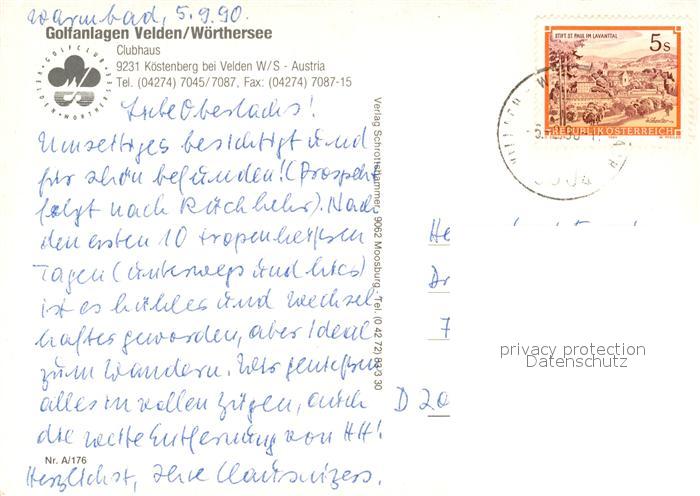 Warmbad, 5.9.90.
Golfanlagen Velden/Wörthersee
Clubhaus
9231 Köstenberg bei Velden W/S - Austria
Tel. (04274) 7045/7087, Fax: (04274) 7087-15
GOLFCLUB
VELDEN WÖRTHERSEE
Liebe Oberlachs!
Umseitiges besichtigt und
für schön befunden! (Prospekt
folgt nach Rückkehr). Nach
den ersten 10 tropenheißen
Tagen (unterwegs und hier)
ist es kühler und wechsel
hafter geworden, aber ideal
zum Wandern. Wir genießen
alles in vollen Zügen, auch
die weite Entfernung von HH!
Nr. A/176
Herzlichst, Ihre
Verlag Schrottshammer, 9062 Moosburg - Tel. (0 42 72) 83 3 30
STIFT ST. PAUL IM LAVANTTAL
5 S
REPUBLIK ÖSTERREICH
He
Dr
7
D 20
privacy protection
Datenschutz